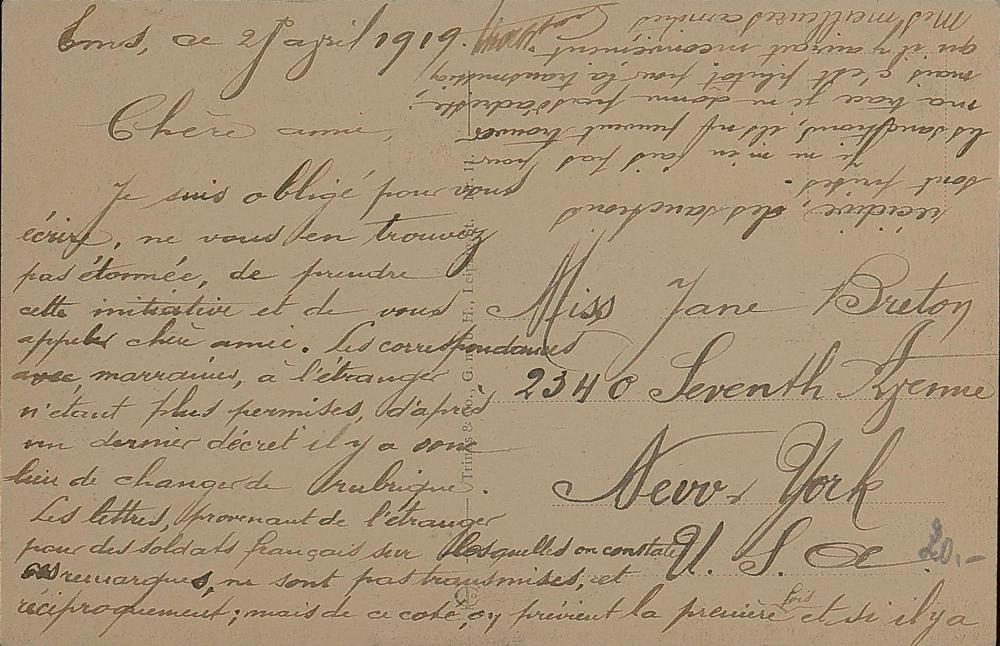 Ems, ce 2 avril 1919.
Chère amie,
Je suis obligé pour vous
écrire, ne vous en trouvez
pas étonnée, de prendre
cette initiative et de vous
appeler chère amie. Les correspondances
avec marraines, à l'étranger
n'étant plus permises, d'après
un dernier décret il y a donc
lieu de changer de rubrique.
Les lettres, provenant de l'étranger
pour des soldats français sur lesquelles on constate
ces remarques, ne sont pas transmises, et
réciproquement; mais de ce côté, on prévient la première fois et si il y a
récidive, des sanctions
sont prises.
Je m'en fais pas pour
les sanctions, ils ne peuvent trouver
ma trace je ne donne pas d'adresse,
mais c'est plutôt pour la transmission
qu'il y aurait inconvénient.
Mes meilleures amitiés
Miss Jane Breton
2340 Seventh Avenue
New-York
U. S. a.
20.-
Trinks & Co., G.m.b.H., Leipzig